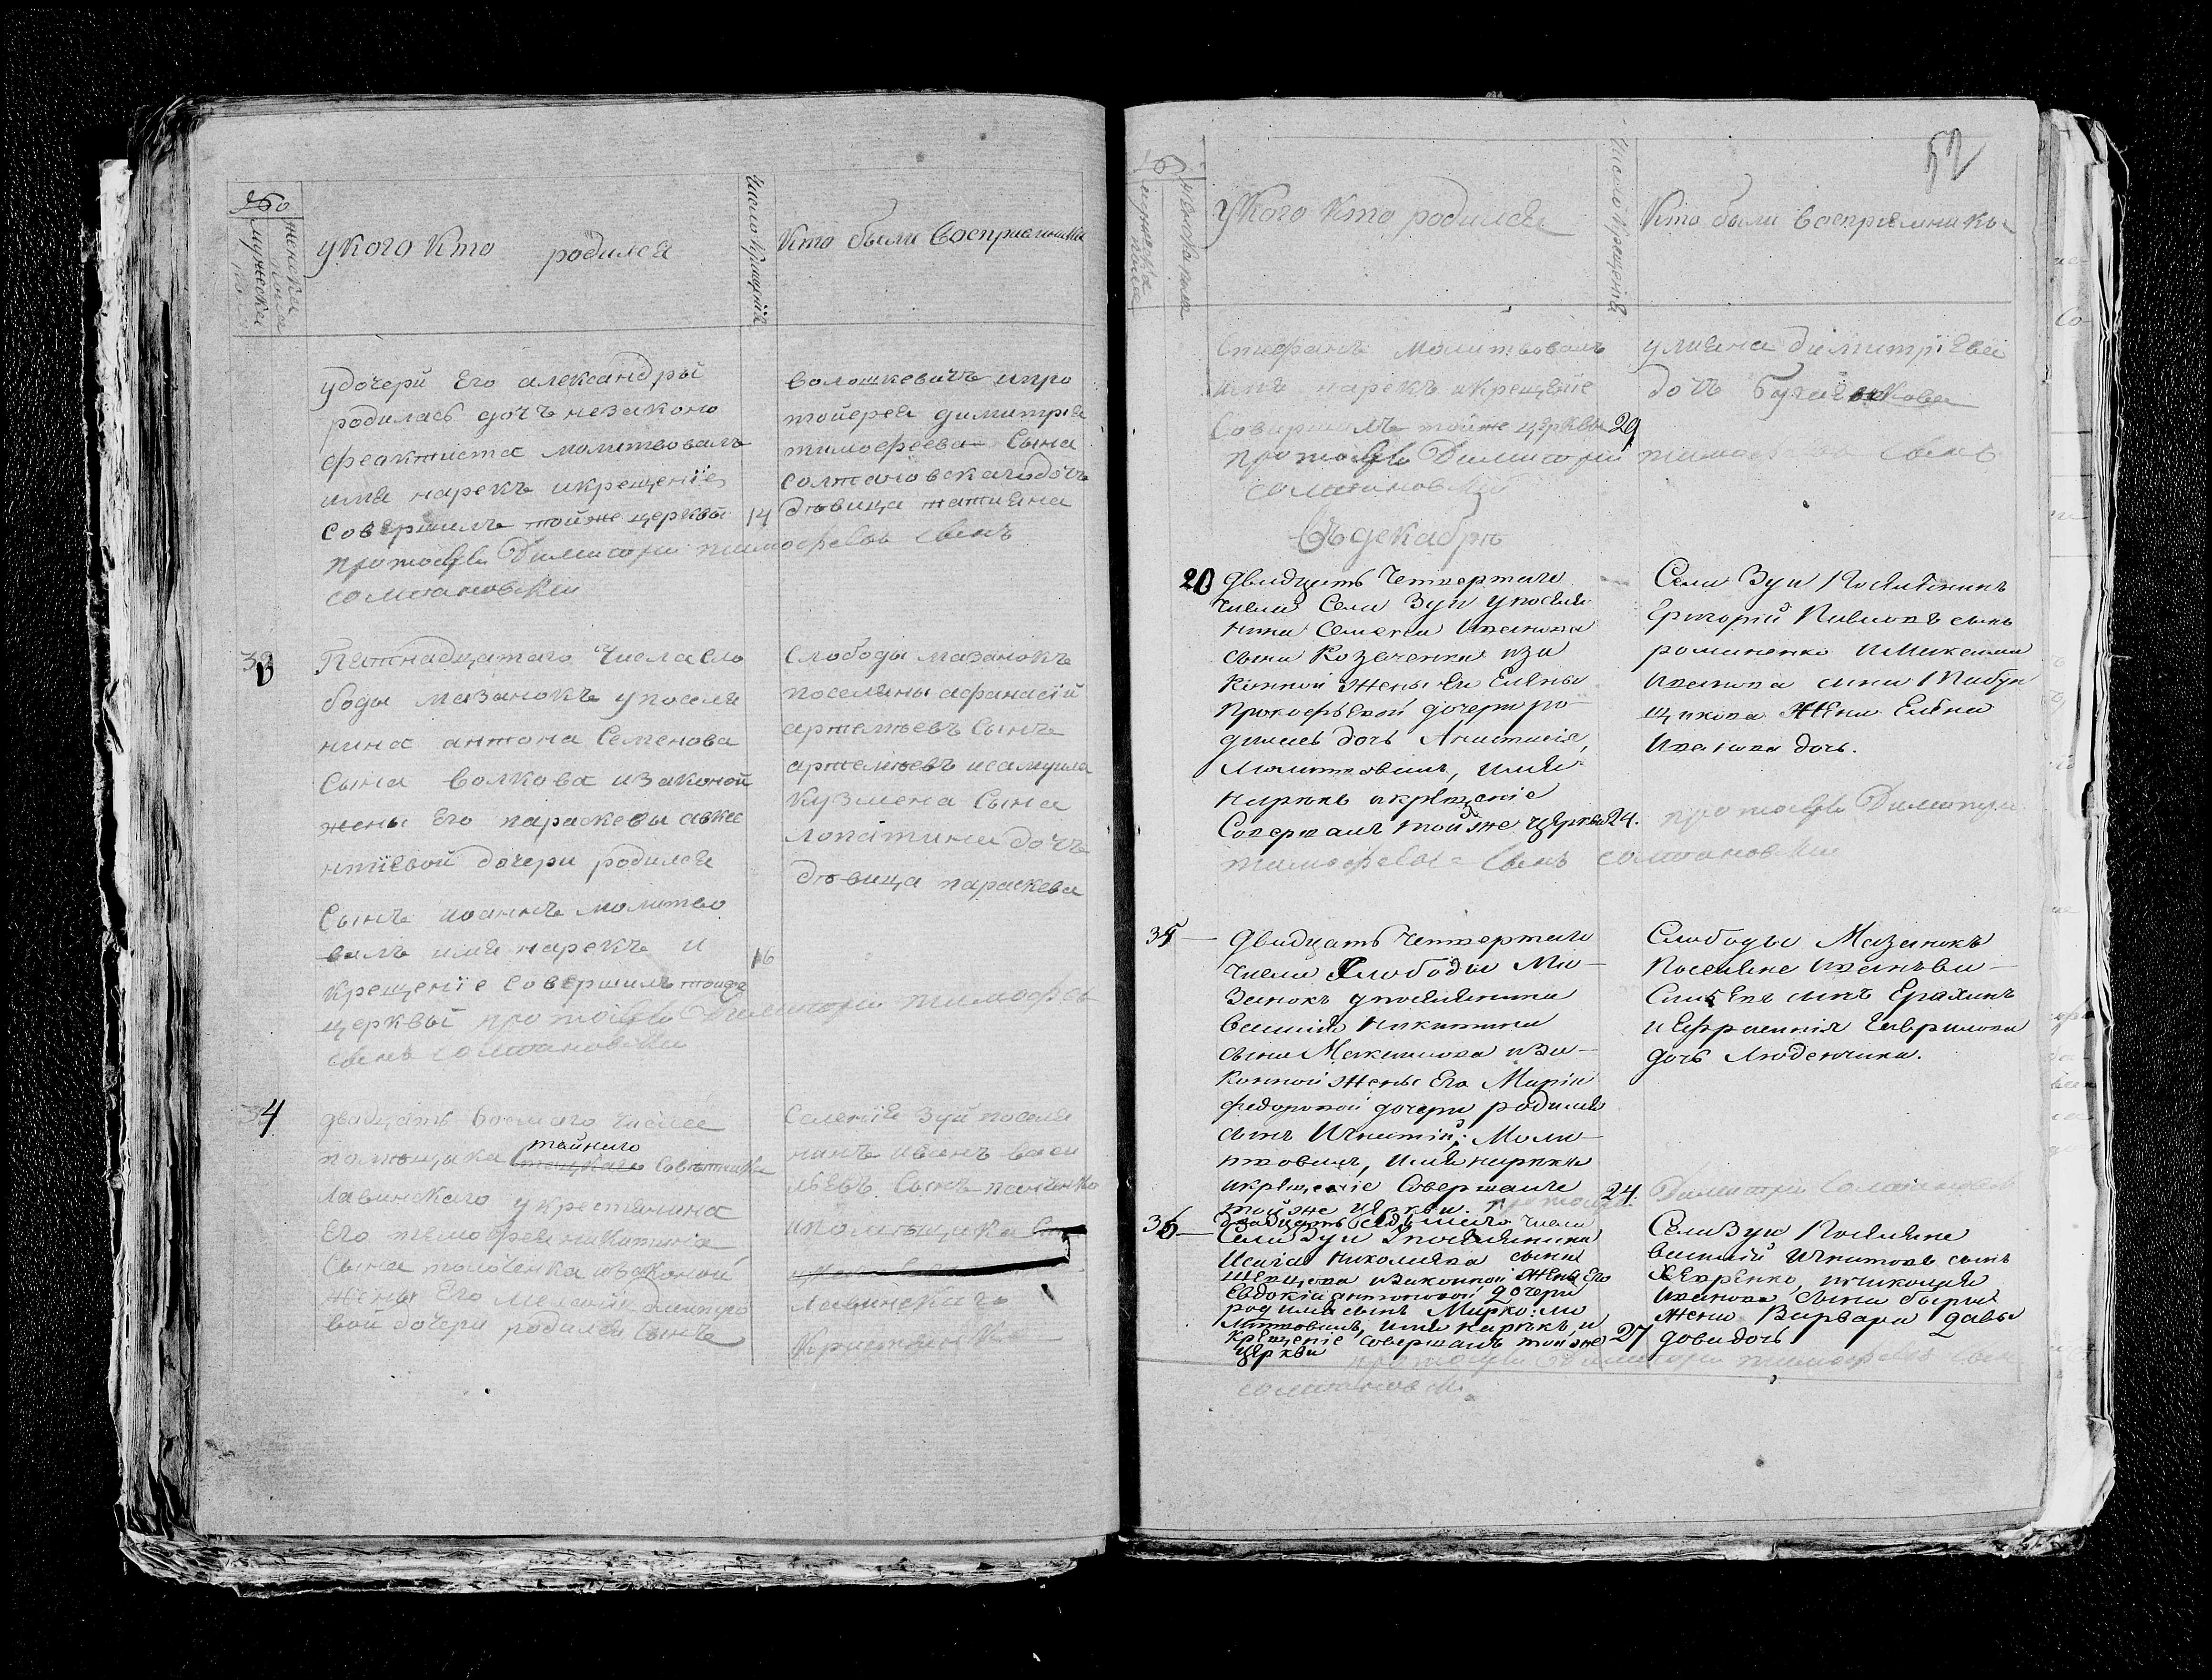 №
мужеска пола
женска пола
у кого кто родился
число крещенїя
кто были восприемники
у дочери его александры
родилась дочь незаконо
феактиста молитвовалъ
имя нарекъ и крещенїе
совершилъ тойже церквы
14
протоиерей Димитрий тимофеевъ сынъ
солтановский
волошкевичъ и про
тойерея димитрия
тимофеева сына
солтановскаго дочь
дѣвица татияна
33
Пятнадцатаго числа сло
боды мазанокъ у поселя
нина антона семенова
сына волкова и законой
жены его параскевы авкс
нтїевой дочери родился
сынъ иоаннъ молитво
валъ имя нарекъ и
16
крещенїе совершилъ тойже
церквы протоиерей Димитрий тимофеевъ
сынъ солтановский
слободы мазанокъ
поселяны афанасїй
артемьевъ сынъ
артемьевъ и самуила
кузмена сына
лопатина дочь
дѣвица параскева
34
двадцать восмого числа
тайнаго
помѣщика совѣтника
Лавинскаго у крестянина
его тимофея никитина
сына и законой
жены его меланїи дмитро
вой дочери родился сынъ
селенїя зуй поселя
нинъ иванъ васи
льевъ сынъ
и помѣщика
Лавинскаго
52
№
мужеска пола
женска пола
у кого кто родился
число крещенїя
кто были восприемники
стефанъ молитвовалъ
имя нарекъ и крещенїе
совершилъ тойже церквы 29
протоиерей Димитрий тимофеевъ сынъ
солтановский
улияна димитрїева
дочь
Въ декабрѣ
20
Двадцать четвертаго
числа села Зуи у поселя
нина Семена Иванова
сына Козаченка и за
конной жены его Елены
Прокофьевой дочери ро-
дилась дочь Анастасія,
Молитвовалъ, имя
нарекъ и крещеніе
Совершилъ тойже церкви 24. протоиерей Димитрий
тимофеевъ сынъ солтановский
Села Зуи Поселянинъ
Григорій Павловъ сынъ
романенко и Максима
Иванова сына Табун
щикова Жена Елена
Иванова дочь.
35
Двадцать четвертаго
числа Слободы Ма-
занокъ у поселянина
Василія Никитина
сына Максимова и за-
конной жены Его Маріи
федоровой дочери родился
сынъ Игнатій; Моли-
твовалъ, имя нарекъ
и крещеніе Совершилъ
тойже церкви. протоиерей 24. Димитрий Солтановский
Слободы Мазанокъ
Поселяне
сынъ
и Ефросинія Гаврилова
дочь
36
Двадцать седьмаго числа
Села Зуи у поселянина
Исаія Николаева сына
Шевцова и законной жены Его
Евдокіи антоновой дочери
родился сынъ Марко: мо
литвовалъ, имя нарекъ, и
крещеніе совершилъ тойже 27
церкви протоиерей Димитрий тимофеевъ сынъ
солтановский
Села Зуи Поселяне
Василій Игнатовъ сынъ
и николая
Иванова сына
жена Варвара Давы
дова дочь